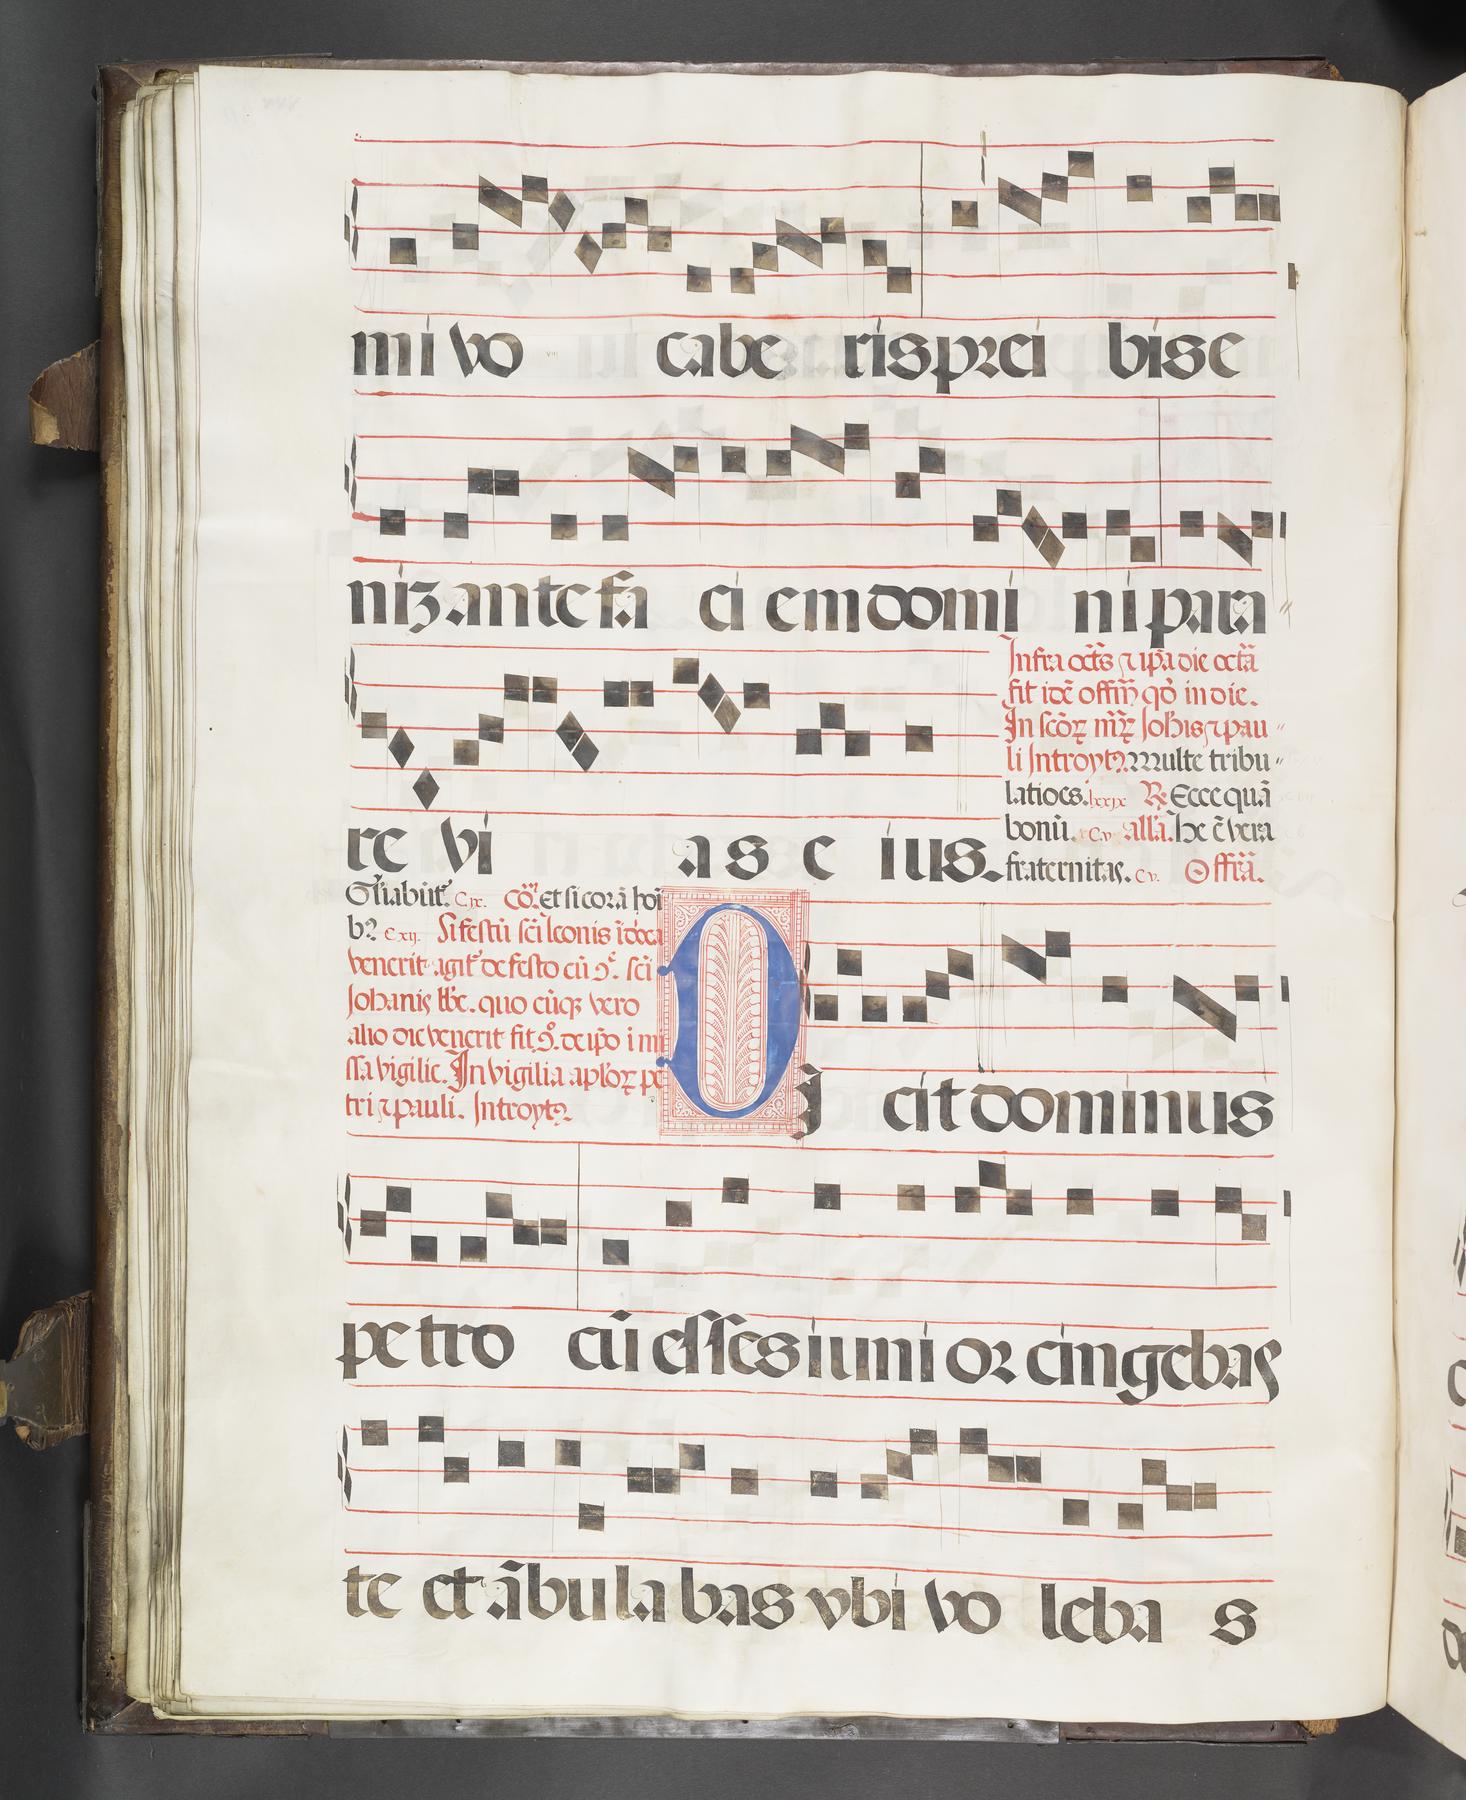 mi vo cabe ris prei bis e
niz ante fa ci em domi ni para
Infra octãs ⁊ ip̃a die octã
fit idẽ offm̃ qð in die.
In scõꝝ mr̃ꝝ Johis ⁊ pau
li Introytꝰ. Multe tribu
latioẽs. lxxix ℟ Ecce quã
bonũ. C.v. allã. Hec ẽ vera
fraternitas. C.v. Offr̃a.
re vi as e ius.
Gl̃iabũt̃. C.ix. Cõ. Et si corã hoĩ
bꝰ C xij. Si festũ sc̃i leonis ĩ doca
venerit agit̃ de festo cũ ꝯ̃. sc̃i
Johanis bb̃e. quo cũqꝫ vero
alio die venerit fit ꝯ̃. de ip̃o i mi
ssa vigilie. In vigilia ap̃loꝝ pe
tri ⁊ pauli. Introytꝰ.
DJ cit dominus
petro cũ esses iunior cingebas
te et ãbulabas vbi vo leba s